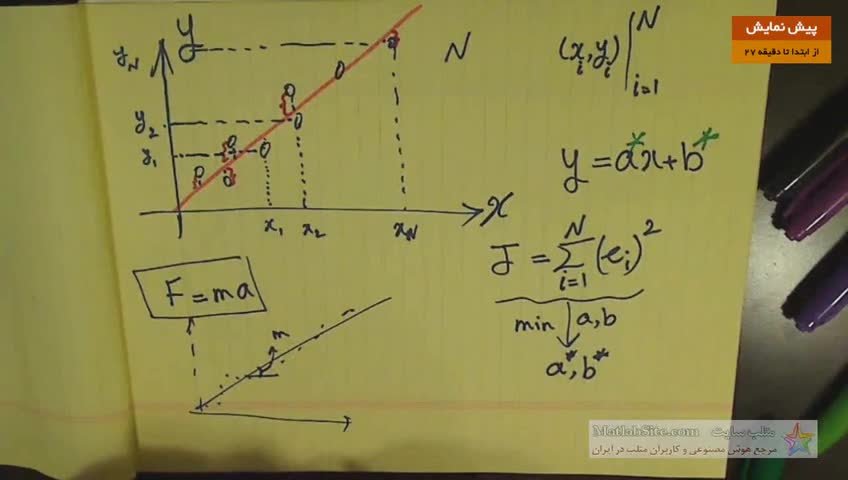 پیش نمایش
از ابتدا تا دقیقه ۲۷
y
y_N
N
(x_i, y_i) |_{i=1}^{N}
y_2
y_1
y = a*x + b*
x_1 x_2 x_N x
J = Σ_{i=1}^{N} (e_i)^2
min a,b
a*, b*
F = ma
m
MatlabSite.com متلب سایت
مرجع هوش مصنوعی و کاربران متلب در ایران